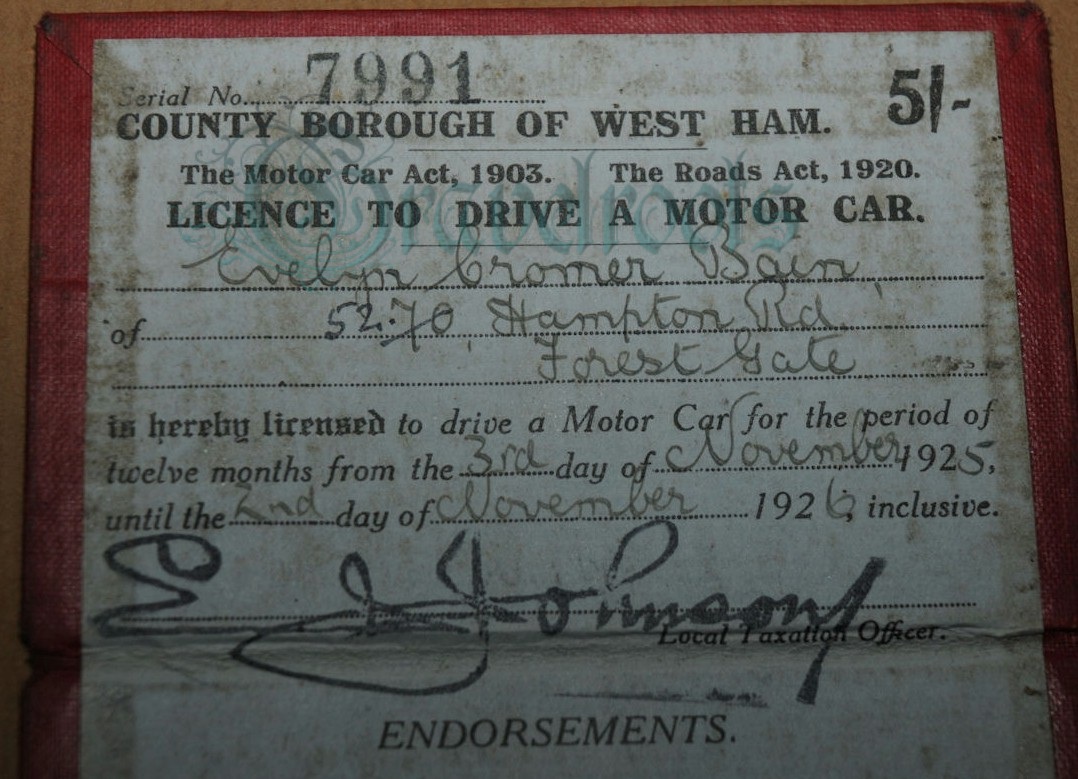 Serial No. 7991
5/-
COUNTY BOROUGH OF WEST HAM.
The Motor Car Act, 1903. The Roads Act, 1920.
LICENCE TO DRIVE A MOTOR CAR.
Evelyn Cromer Bain
of 52.70, Hampton Rd
Forest Gate
is hereby licensed to drive a Motor Car for the period of
twelve months from the 3rd day of November 1925,
until the 2nd day of November 1926, inclusive.
E J Johnson
Local Taxation Officer.
ENDORSEMENTS.